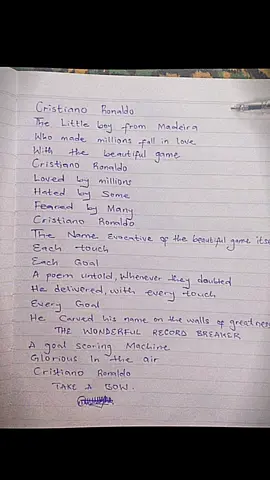 Cristiano Ronaldo
The Little boy from Madeira
Who made millions fall in love
With the beautiful game
Cristiano Ronaldo
Loved by millions
Hated by Some
Feared by Many
Cristiano Ronaldo
The Name Evocative of the beautiful game itse
Each touch
Each Goal
A poem untold, whenever they doubted
He delivered, with every touch
Every Goal
He Carved his name on the walls of greatness
THE WONDERFUL RECORD BREAKER
A goal scoring Machine
Glorious In the air
Cristiano Ronaldo
TAKE A BOW.